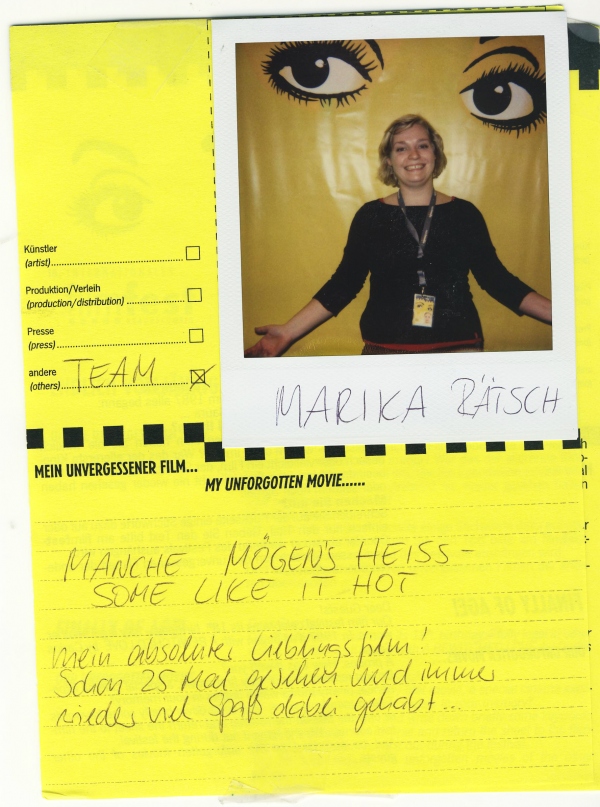 Künstler
(artist)
Produktion/Verleih
(production/distribution)
Presse
(press)
andere
(others) TEAM
MARIKA RÄTSCH
MEIN UNVERGESSENER FILM...
MY UNFORGOTTEN MOVIE......
MANCHE MÖGEN'S HEISS -
SOME LIKE IT HOT
mein absoluter Lieblingsfilm!
Schon 25 Mal gesehen und immer
wieder viel Spaß dabei gehabt...
FINALLY OF AGE!